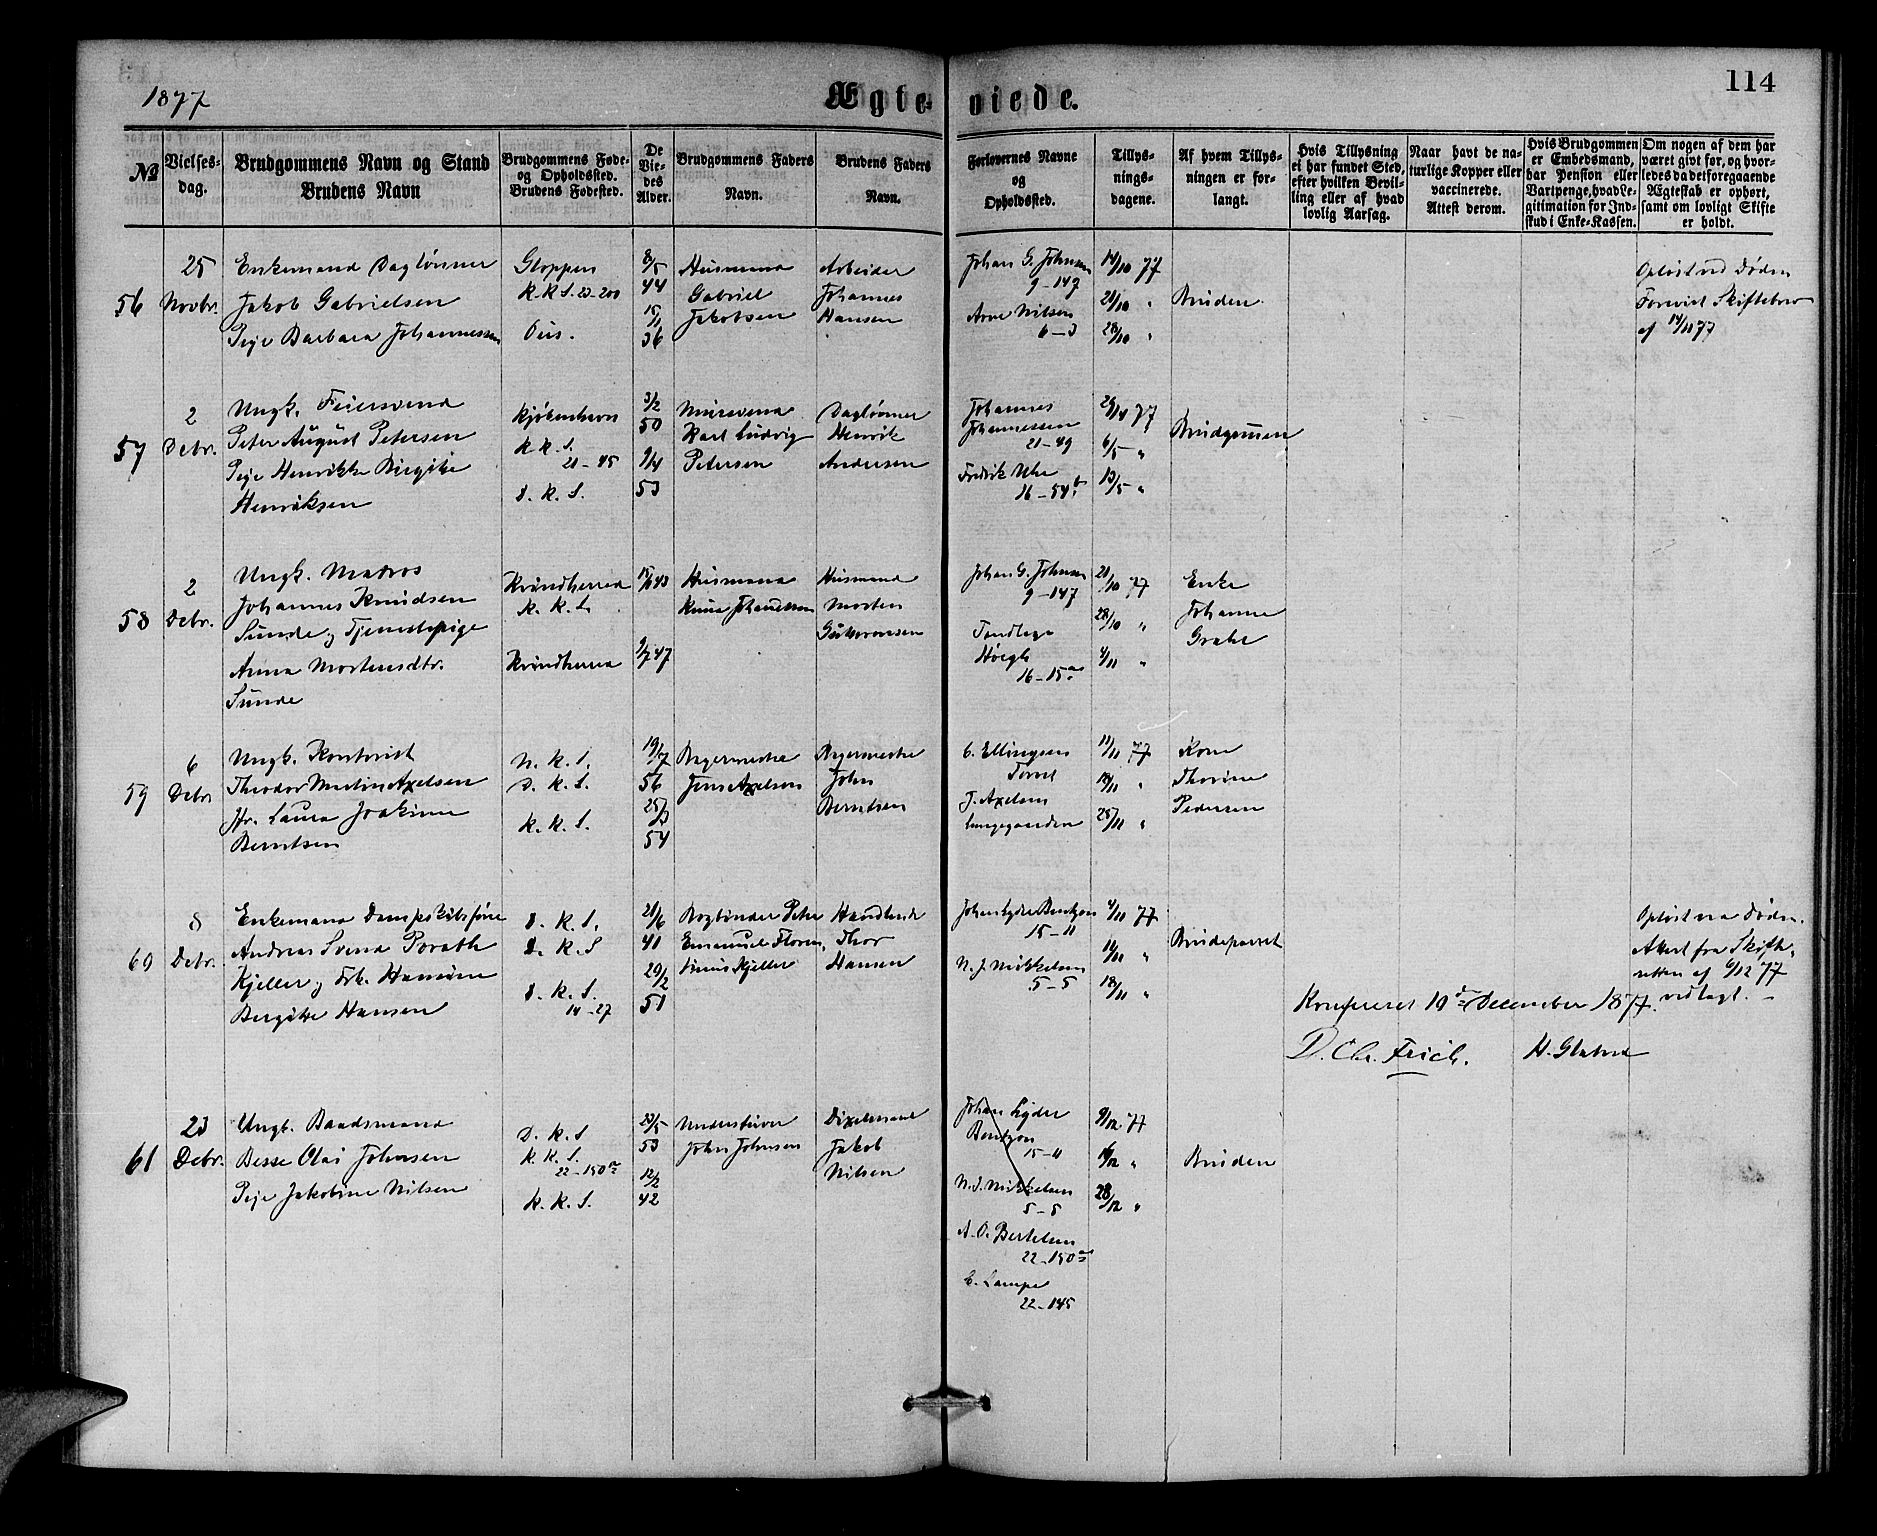 1877
Ægte-
viede.
114
No
Vielses-
dag.
Brudgommens Navn og Stand
Brudens Navn
Brudgommens Føde-
og Opholdssted.
Brudens Fødested.
De
Vie-
des
Alder.
Brudgommens Faders
Navn.
Brudens Faders
Navn.
Forlovernes Navne
og
Opholdssted.
Tillys-
nings-
dagene.
Af hvem Tillys-
ningen er for-
langt.
Hvis Tillysning
ei har fundet Sted,
efter hvilken Bevil-
ling eller af hvad
lovlig Aarsag.
Naar havt de na-
turlige Kopper eller
vaccinerede.
Attest derom.
Hvis Brudgommen
er Embedsmand,
har Pension eller
Vartpenge, hvad Le-
gitimation for Ind-
skud i Enke-Kassen.
Om nogen af dem har
været givt for, og hvor-
ledes da det foregaaende
Ægteskab er ophørt,
samt om lovligt Skifte
er holdt.
56
25
Novbr.
Enkemand Daglønner
Jakob Gabrielsen
Pige Barbara Johannessen
Gloppen
K.K.S. 23-200
8/5
44
15/1
36
Husmand
Gabriel
Jakobsen
Arbeider
Johannes
Hansen
Johan G. Johnsen
9-147
Arne Nilsen
6-3
14/10 77
21/10 "
28/10 "
Bruden.
Opløst ved Døden
af 14/11 77
57
2
Debr.
Ungk. Feiersvend
Peter August Petersen
Pige Henrikke Birgitte
Henriksen
Kjøbenhavn
K.K.S.
21-45
D.K.S.
3/2
50
9/4
53
Murersvend
Karl Ludvig
Petersen
Daglønner
Henrik
Andersen
Johannes
Johannessen
21-49
Fredrik
16-54
29/4 77
6/5 "
13/5 "
Brudgommen
58
2
Debr.
Ungk. Matros
Johannes Knudsen
Sunde, Tjenestepige
Anna Mortensdtr.
Sunde
Kvindherred
K.K.S.
Kvindherred
15/ 43
9/7 47
Husmand
Knud Johannessen
Husmand
Morten
Guttormsen
Johan G. Johnsen
9-147
Tandlæge
Høegh
16-15a
21/10 77
28/10 "
4/11 "
Enke
Johanne
Grahe
59
6
Debr
Ungk. Kontorist
Theodor Martin Axelsen
Jfr. Laura Joakime
Berntsen
N.K.S.
D.K.S.
K.K.S.
19/7
56
25/3
54
Bagermester
Jens Axelsen
Bagermester
John
Berntsen
C. Ellingsen
Torvet
J. Axelsen
Lungegaarden
11/11 77
18/11 "
25/11 "
Kone
Thorine
Pedersen
60
8
Debr.
Enkemand Dampskibsfører
Andreas Svend Porath
Kjeller, Frk. Hansine
Birgitte Hansen
D.K.S.
D.K.S
D.K.S.
14-27
21/6
41
29/2
51
Bogbinder Peter
Emanuel Floren-
tinus Kjeller
Handlende
Thor
Hansen
Johan Lyder Bentzon
15-11
N.J. Mikkelsen
5-5
4/11 77
11/11 "
18/11 "
Brudeparret
Opløst ved Døden.
Attest fra Skifte-
retten af 6/12 77
vedlagt. -
Konfereret 19de December 1877.
D. Chr. Frich.
61
23
Debr.
Ungk. Baadsmand
Besse Olai Johnsen
Pige Jakobine Nilsen
D.K.S
K.K.S.
22-150a
K.K.S.
23/5
53
12/2
42
Understuer
John Johnsen
Dixelmand
Jakob
Nilsen
Johan Lyder
Bentzon
15-11
N.J. Mikkelsen
5-5
A.O. Bertelsen
22-150a
C. Lampe
22-145
9/12 77
16/12 "
23/12 "
Bruden